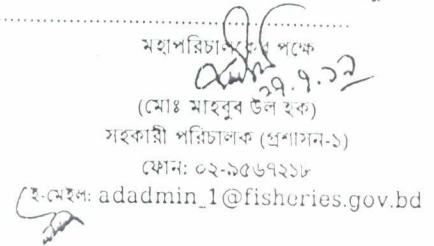 মহাপরিচালকের পক্ষে
২৭.৭.১৯
(মোঃ মাহবুব উল হক)
সহকারী পরিচালক (প্রশাসন-১)
ফোন: ০২-৯৫৬৭২১৮
ই-মেইল: adadmin_1@fisheries.gov.bd